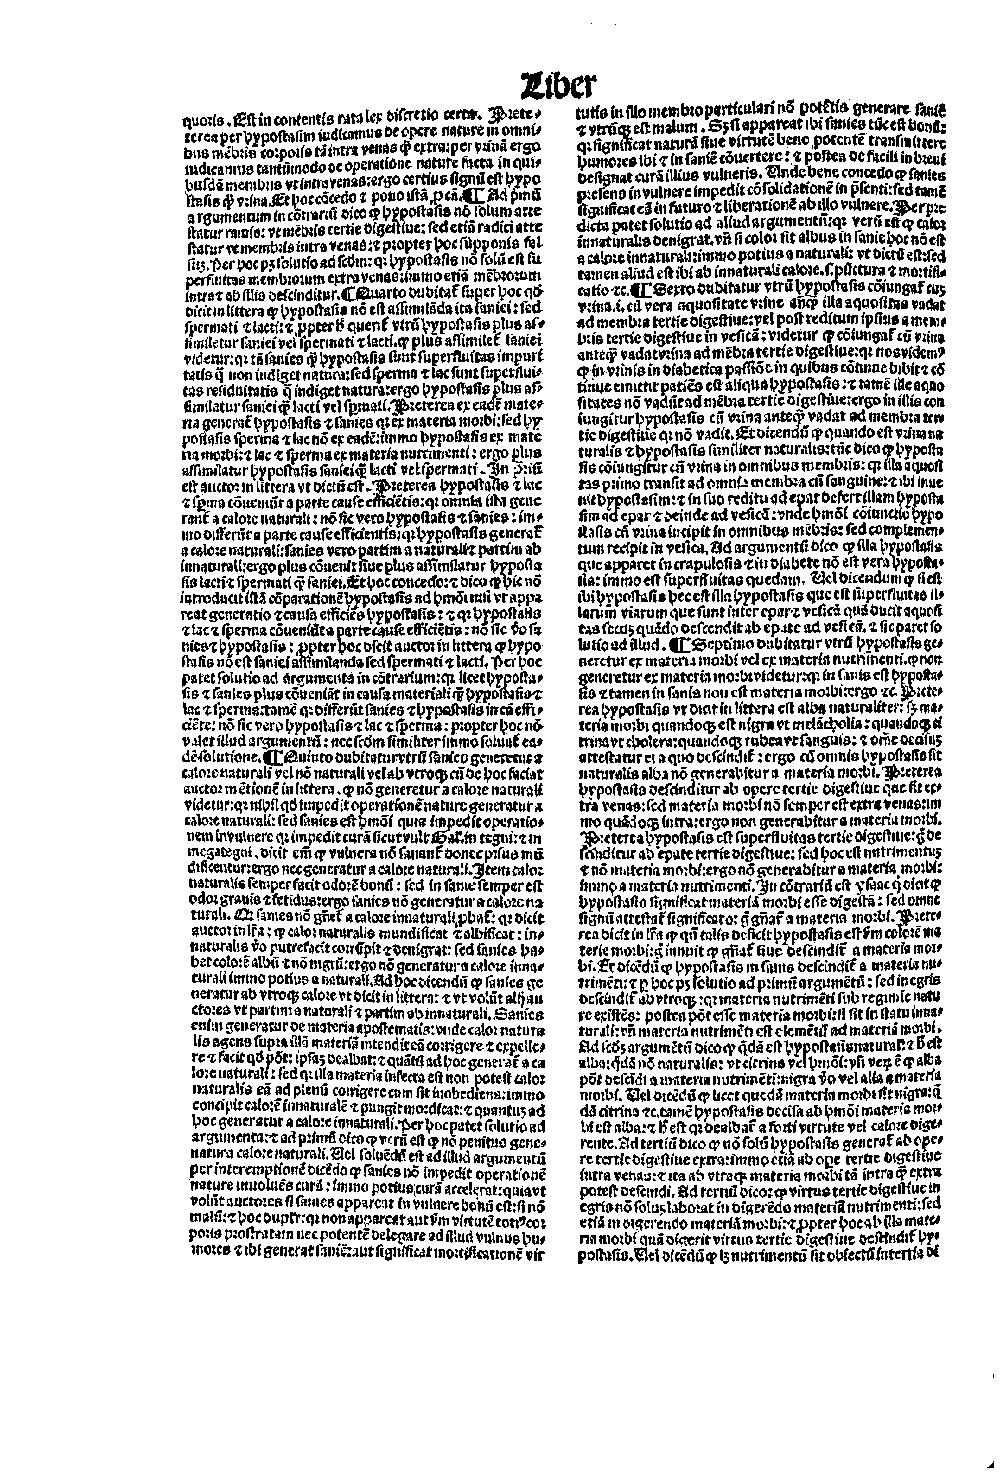 Liber
quoris. Est in contentis rata lex discretio certa. Prete-
terea per hypostasim iudicamus de opere nature in omni
bus mēbris corporis tā intra venas q̄ extra: per vrinā ergo
iudicamus tantūmodo de operatione nature facta in qui
busdā membris vt intra venas: ergo certius signū est hypo
stasis q̄ vrina. Et hoc cōcedo ⁊ pono istā
argumentum in cōtrariū dico ꝙ hypostasis nō solum atte
statur ramis: vt mēbris tertie digestiue: sed etiā radici atte
statur vt membris intra venas: ⁊ propter hoc supponis fal
suꝫ. Per hoc pꝫ solutio ad scđm: qꝛ hypostasis nō solū est su
perfluitas membrorum extra venas: immo etiā mēbrorum
intra ⁊ ab illis descinditur. ¶ Quarto dubitat̄ super hoc qđ
dicit in littera ꝙ hypostasis nō est assimilāda ita saniei: sed
spermati ⁊ lacti: ⁊ ꝓpter ħ querit̄ vtrū hypostasis plus as-
similetur saniei vel spermati ⁊ lacti. ꝙ plus assimilet̄ saniei
videtur: qꝛ tā sanies q̄ hypostasis sunt superfluitas impuri
tatis q̄ non indiget natura: sed sperma ⁊ lac sunt superflui-
tas residuitatis q̄ indiget natura: ergo hypostasis plus assi
similatur saniei q̄ lacti vel spmati. Preterea ex eadē mate-
ria generat̄ hypostasis ⁊ sanies qꝛ ex materia morbi: sed hy
postasis sperma ⁊ lac nō ex eadē: immo hypostasis ex mate
ria morbi: ⁊ lac ⁊ sperma ex materia nutrimenti: ergo plus
assimilatur hypostasis saniei q̄ lacti vel spermati. In ɔ̄riū
est auctor in littera vt dictū est. Preterea hypostasis ⁊ lac
⁊ spma cōueniūt a parte cause efficiētis: qꝛ omnia illa gene
rant̄ a calore naturali: nō sic vero hypostasis ⁊ sanies: im-
mo differūt a parte cause efficientis: qꝛ hypostasis generat̄
a calore naturali: sanies vero partim a naturali ⁊ partim ab
innaturali: ergo plus cōuenit siue plus assimilatur hyposta
sis lacti ⁊ spermati q̄ saniei. Et hoc concedo: ⁊ dico ꝙ hic nō
introducit istā cōparationē hypostasis ad hmōi nisi vt appa
reat generatio ⁊ causa efficiēs hypostasis: ⁊ qꝛ hypostasis
⁊ lac ⁊ sperma cōueniūt a parte cause efficiētis: nō sic v̄o sa
nies ⁊ hypostasis: ꝓpter hoc dicit auctor in littera ꝙ hypo
stasis nō est saniei assimilanda sed spermati ⁊ lacti. Per hoc
patet solutio ad argumenta in cōtrarium: qꝛ licet hyposta-
sis ⁊ sanies plus cōueniāt in causa materiali q̄ hypostasis ⁊
lac ⁊ sperma: tamē qꝛ differūt sanies ⁊ hypostasis in cā effi-
ciēte: nō sic vero hypostasis ⁊ lac ⁊ sperma: propter hoc nō
valet illud argumentū: nec scđm similiter immo soluit̄ ea-
dē solutione. ¶ Quinto dubitatur vtrū sanies generetur a
calore naturali vel nō naturali vel ab vtroqꝫ cū de hoc faciat
auctor mētionē in littera. ꝙ nō generetur a calore naturali
videtur: qꝛ nihil qđ impedit operationē nature generatur a
calore naturali: sed sanies est hmōi quia impedit operatio-
nem in vulnere qꝛ impedit curā sicut vult Gal. in tegni: ⁊ in
megategni. dicit em̄ ꝙ vulnera nō sanant̄ donec prius mū
dificentur: ergo nec generatur a calore naturali. Item calor
naturalis semper facit odorē bonū: sed in sanie semper est
odor grauis ⁊ fetidus: ergo sanies nō generatur a calore na
turali. Qđ sanies nō gn̄et̄ a calore innaturali ꝓbat̄: qꝛ dicit
auctor in lr̄a: ꝙ calor naturalis mundificat ⁊ albificat: in-
naturalis v̄o putrefacit corrūpit ⁊ denigrat: sed sanies ha-
bet colorē albū ⁊ nō nigrū: ergo nō generatur a calore inna-
turali immo potius a naturali. Ad hoc dicendū ꝙ sanies ge
neratur ab vtroqꝫ calore vt dicit in littera: ⁊ vt volūt alij au
ctores vt partim a naturali ⁊ partim ab innaturali. Sanies
enim generatur de materia apostematis: vnde calor natura
lis agens supra illā materiā intendit eā corrigere ⁊ expelle-
re ⁊ facit qđ pōt: ipsaꝫ dealbat: ⁊ quātū ad hoc generat̄ a ca
lore naturali: sed quia illa materia infecta est non potest calor
naturalis eā ad plenū corrigere cum sit inobediens: immo
concipit calorē innaturalē ⁊ pungit mordicat: ⁊ quantuꝫ ad
hoc generatur a calore innaturali. Per hoc patet solutio ad
argumenta: ⁊ ad primū dico ꝙ verū est ꝙ nō penitus gene-
ratur a calore naturali. Vel soluēdū est ad illud argumentū
per interemptionē dicēdo ꝙ sanies nō impedit operationē
nature inuoluēs curā: immo potius curā accelerat: quia vt
volūt auctores si sanies appareat in vulnere bonū est: si nō
malū: ⁊ hoc duplr̄: qꝛ non apparet aut ꝓpter virtutē
poris prostratam nec potentē delegare ad illud vulnus hu-
mores ⁊ ibi generat saniē: aut significat mortificationē vir
tutis in illo membro particulari nō potētis generare saniē
⁊ vtrūqꝫ est malum. Sꝫ si appareat ibi sanies tūc est bonū:
qꝛ significat naturā siue virtutē bene potentē transmittere
humores ibi ⁊ in saniē cōuertere: ⁊ postea de facili in breui
designat curā illius vulneris. Unde bene concedo ꝙ sanies
presens in vulnere impedit cōsolidationē in pn̄ti: sed tamē
significat eā in futuro ⁊ liberationē ab illo vulnere. Per pre
dicta patet solutio ad aliud argumentū: qꝛ verū est ꝙ calor
innaturalis denigrat. vn̄ si color sit albus in sanie hoc nō est
a calore innaturali: immo potius a naturali: vt dictū est: sed
tamen aliud est ibi ab innaturali calore. s. pūctura ⁊ mortifi-
catio ⁊c. ¶ Sexto dubitatur vtrū hypostasis cōiungat̄ cuꝫ
vrina. i. cū vera aquositate vrine anteq̄ illa aquositas vadat
ad membra tertie digestiue: vel post reditum ipsius a mem-
bris tertie digestiue in vesicā: videtur ꝙ cōiungat̄ cū vrina
anteqꝫ vadat vrina ad mēbra tertie digestiue: qꝛ nos videmꝰ
ꝙ in vrinis in diabetica passiōe in quibus cōtinue bibit ⁊ cō
tinue emittit patiēs est aliqua hypostasis: ⁊ tamē ille aquo
sitates nō vadūt ad mēbra tertie digestiue: ergo in illis con
iungitur hypostasis cū vrina anteq̄ vadat ad membra ter
tie digestiue qꝛ nō vadit. Et dicendū ꝙ quando est vrina na
turalis ⁊ hypostasis similiter naturalis: tūc dico ꝙ hyposta
sis cōiungitur cū vrina in omnibus membris: qꝛ illa aquosi
tas primo transit ad omnia membra cū sanguine: ⁊ ibi inue
nit hypostasim: ⁊ in suo reditu ad epar defert illam hyposta
sim ad epar ⁊ deinde ad vesicā: vnde hmōi cōiunctio hypo
stasis cū vrina incipit in omnibus mēbris: sed complemen-
tum recipit in vesica. Ad argumentū dico ꝙ illa hypostasis
que apparet in crapulosis ⁊ in diabete nō est vera hyposta-
sis: immo est superfluitas quedam. Vel dicendum ꝙ si est
ibi hypostasis hec est illa hypostasis que est superfluitas il-
larum viarum que sunt inter epar ⁊ vesicā quā ducit aquosi
tas secuꝫ quādo descendit ab epate ad vesicā. ⁊ sic paret so
lutio ad illud. ¶ Septimo dubitatur vtrū hypostasis ge-
neretur ex materia morbi vel ex materia nutrimenti. ꝙ non
generetur ex materia morbi videtur: qꝛ in sanis est hyposta-
sis ⁊ tamen in sanis non est materia morbi: ergo ⁊c. Prete-
rea hypostasis vt dicit in littera est alba naturaliter: sꝫ ma-
teria morbi quandoqꝫ est nigra vt melācholia: quandoqꝫ ci
trina vt cholera: quandoqꝫ rubea vt sanguis: ⁊ om̄e decisuꝫ
attestatur ei a quo descindit̄: ergo cū omnis hypostasis sit
naturalis alba nō generabitur a materia morbi. Preterea
hypostasis descinditur ab opere tertie digestiue que fit ex-
tra venas: sed materia morbi nō semper est extra venas: im
mo quādoqꝫ intra: ergo non generabitur a materia morbi.
Preterea hypostasis est superfluitas tertie digestiue: q̄ de
scinditur ab epate tertie digestiue: sed hoc est nutrimentuꝫ
⁊ nō materia morbi: ergo nō generabitur a materia morbi:
immo a materia nutrimenti. In cōtrariū est ysaac qͥ dicit ꝙ
hypostasis significat materiā morbi esse digestā: sed omne
signū attestat̄ significato: g̊ gn̄at̄ a materia morbi. Prete-
rea dicit in lr̄a ꝙ qn̄ talis deficit hypostasis est fm̄ colorē ma
terie morbi: g̊ innuit ꝙ gn̄at̄ siue descindit̄ a materia mor-
bi. Et dicēdū ꝙ hypostasis in sanis descindit̄ a materia nu-
trimēti: ⁊ ꝑ hoc pꝫ solutio ad primū argumētū: sed in egris
descindit̄ ab vtroqꝫ: qꝛ materia nutrimēti sub regimine natu
re existēs: postea pōt esse materia morbi: si sit in statu inna-
turali: vn̄ materia nutrimēti est elementū ad materiā morbi.
Ad scđꝫ argumētū dico ꝙ q̄dā est hypostasis naturalis: ⁊ ħ est
alba: q̄dā nō naturalis: vt citrina vel hmōi: vn̄ veꝝ ē ꝙ alba
pōt descīdi a materia nutrimēti: nigra v̄o vel alia a materia
morbi. Vel dicēdū ꝙ licet quedā materia morbi sit nigra: q̄
dā citrina ⁊c. tamē hypostasis decisa ab hmōi materia mor-
bi est alba: ⁊ ħ est qꝛ dealbat̄ a forti virtute vel calore dige-
rente. Ad tertiū dico ꝙ nō solū hypostasis generat̄ ab ope-
re tertie digestiue extra: immo etiā ab oꝑe tertie digestiue
intra venas: ⁊ ita ab vtraqꝫ materia morbi tā intra q̄ extra
potest descindi. Ad tertiū dico: ꝙ virtus tertie digestiue in
egris nō soluꝫ laborat in digerēdo materiā nutrimenti: sed
etiā in digerendo materiā morbi: ⁊ ꝓpter hoc ab illa mate-
ria morbi quā digerit virtus tertie digestiue descindit̄ hy-
postasis. Vel dicēdū ꝙ lꝫ nutrimentū sit obiectū in tertia di